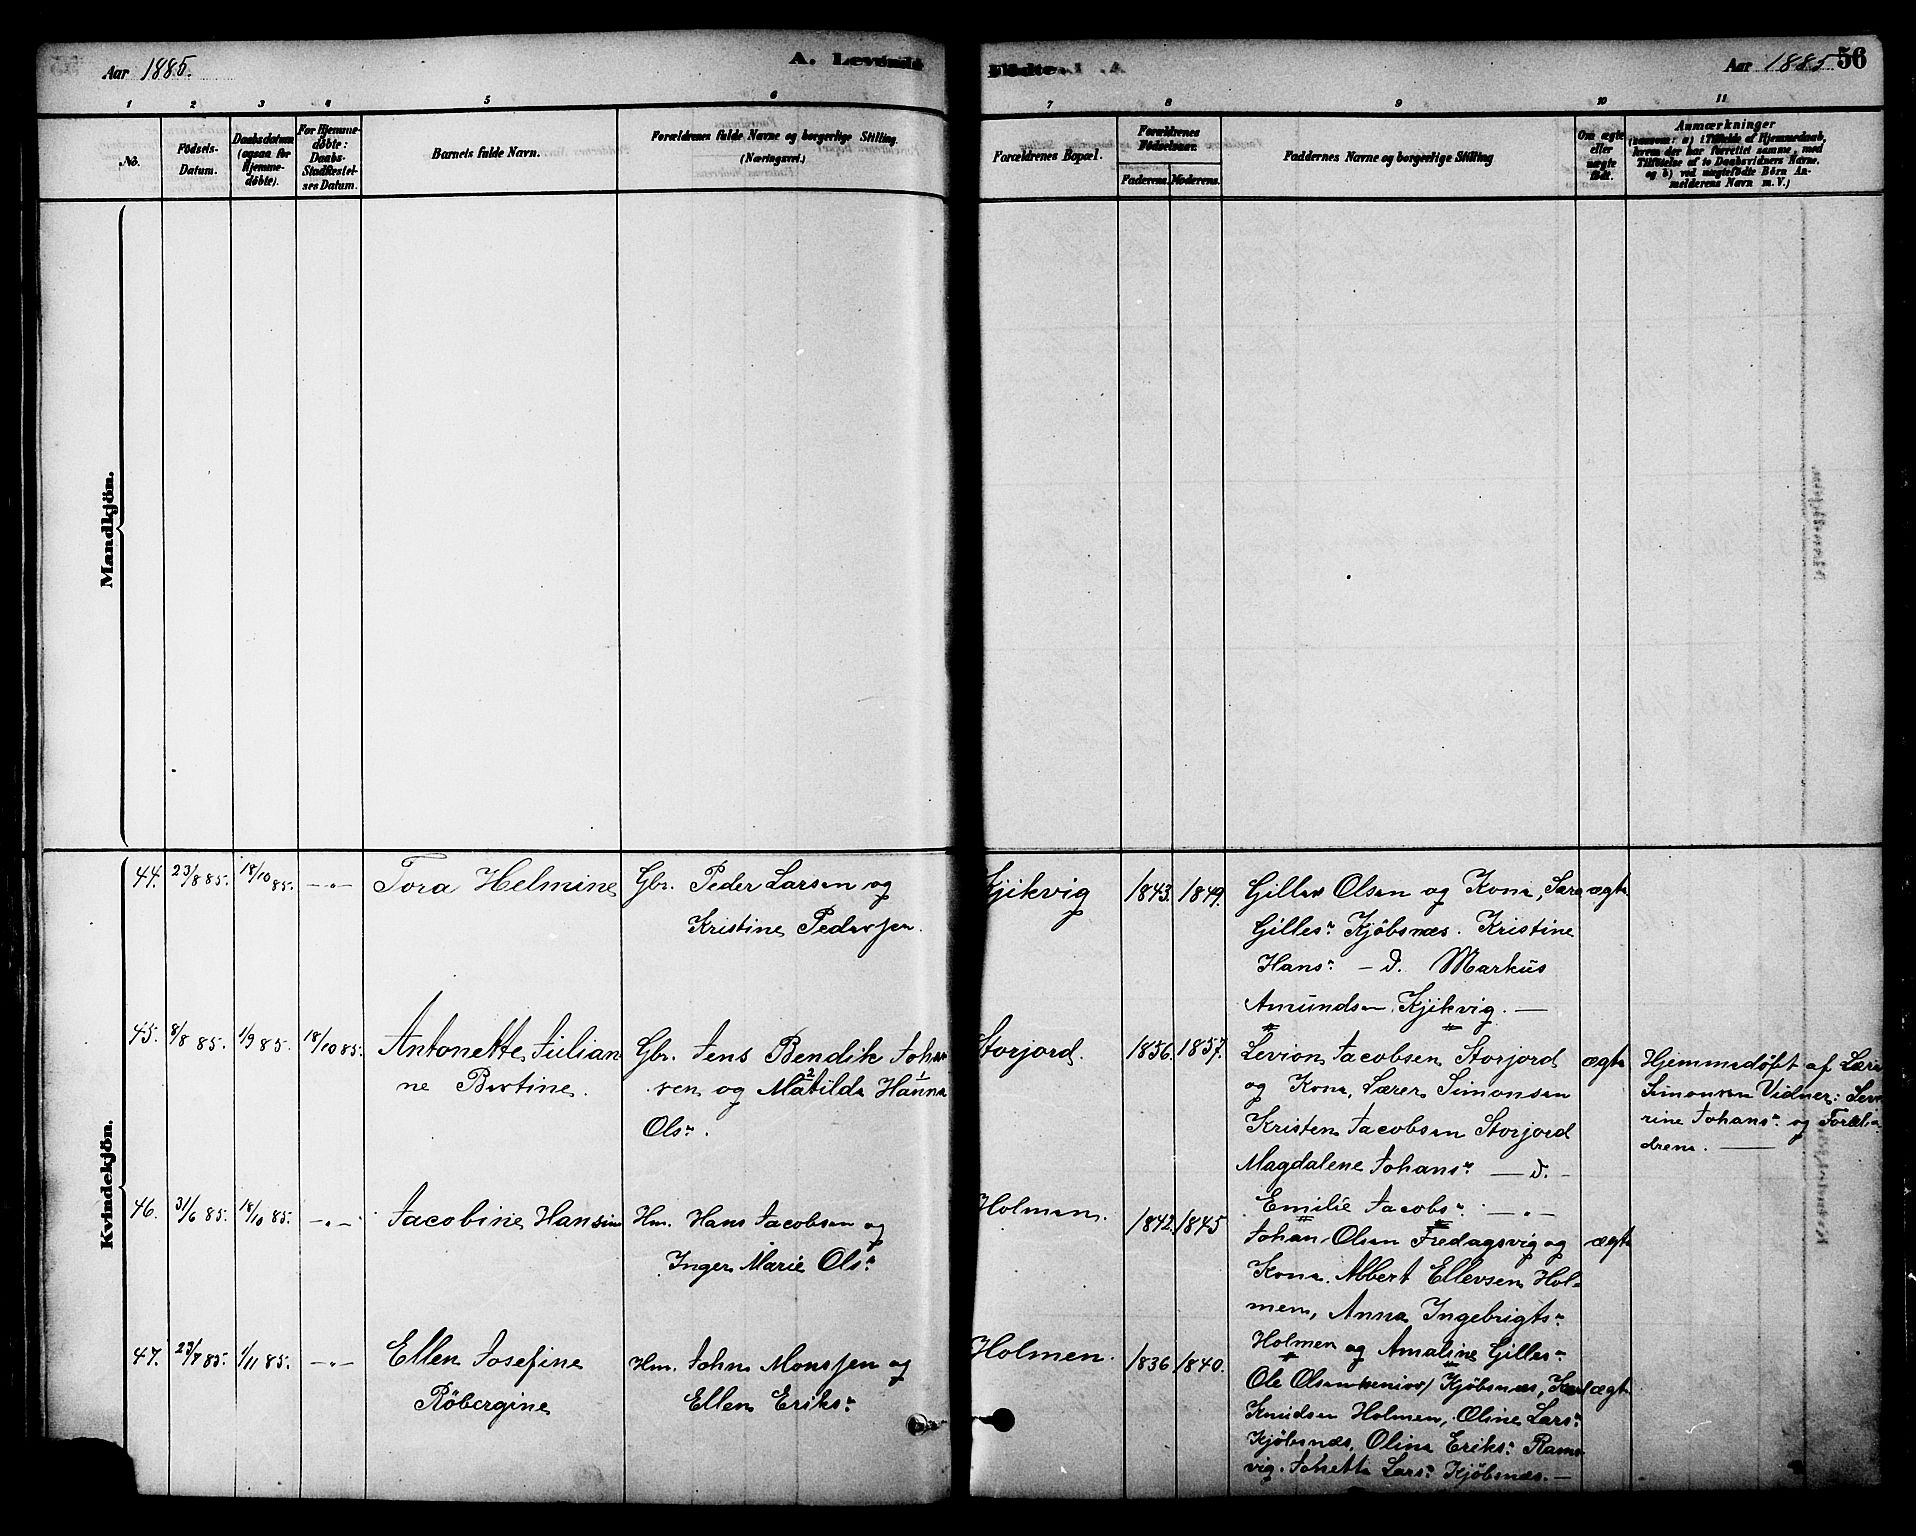 Aar 1885. A. Levende Födte. Aar 1885. 56
1 2 3 4 5 6 7 8 9 10 11
No.
Födsels-
Datum.
Daabsdatum
(ogsaa for
Hjemme-
döbte).
For Hjemme-
døbte:
Daabs-
Stadfæstel-
ses Datum.
Barnets fulde Navn.
Forældrenes fulde Navne og borgerlige Stilling
(Næringsvei.)
Forældrenes Bopæl.
Forældrenes
Födselsaar.
Faderens. Moderens.
Faddernes Navne og borgerlige Stilling
Om ægte
eller
uægte
født.
Anmærkninger
(saasom: a) i Tilfælde af Hjemmedaab,
hvem der har forrettet samme, med
Tilföielse af to Daabsvidners Navne.
og b) ved uægtefödte Börn An-
melderens Navn m. V.)
Mandkjön.
Kvindekjön.
44. 23/8 85. 18/10 85. —„— Tora Helmine Gbr. Peder Larsen og
Kristine Pedersen.
Kjikvig 1843. 1849.
Gilles Olsen og Kona, Sara
Gillesn Kjöbsnæs. Kristine
Hansn — d. Markus
Amundsen Kjikvig. —
ægte
45. 8/8 85. 1/9 85. 18/10 85. Antonette Julian
ne Bertine.
Gbr. Jens Bendik Johan
sen og Matilda Hanna
Olsn.
Storjord. 1856. 1857.
Levion Jacobsen Storjord
og Kona, Lærer Simonsen
Kristen Jacobsen Storjord
Magdalene Johansn — d. —
Emilie Jacobsn —„—
ægte
Hjemmedøbt af Lærer
Simonsen Vidner: Seve
rine Johansn og Foræl-
drene. —
46. 31/6 85. 18/10 85. —„— Jacobine Hansine
Hm. Hans Jacobsen og
Inger Marie Olsn
Holmen. 1842. 1845
Johan Olsen Fredagsvig og
Kona. Albert Ellevsen Hol-
men, Anna Ingebrigtsn
Holmen og Amaline Gillesn
ægte
47. 23/7 85. 1/11 85. —„— Ellen Josefine
Röbergine
Hm. John Monssen og
Ellen Eriksn
Holmen. 1836 1840.
Ole Olsen (senior) Kjöbsnæs, Karl
Knudsen Holmen, Oline Larsn
Kjöbsnæs, Olina Eriksn Rams
vig. Jonetta Larsn Kjöbsnæs. —
ægte